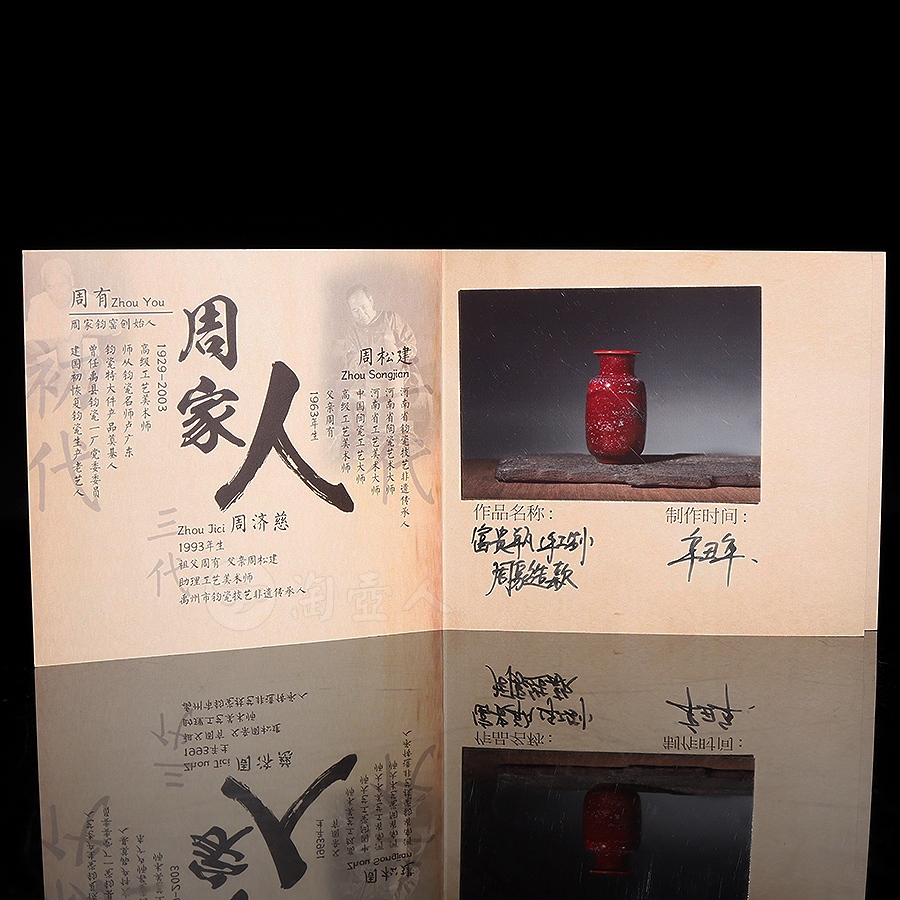 周有 Zhou You
周家钧窑创始人
1929-2003
高级工艺美术师
师从钧瓷名师卢广东
钧瓷特大件产品奠基人
曾任禹县钧瓷一厂党委委员
建国初恢复钧瓷生产老艺人
初代
周家人
周松建
Zhou Songjian
河南省钧瓷技艺非遗传承人
河南省陶瓷艺术大师
河南省工艺美术大师
中国陶瓷工艺大师
高级工艺美术师
父亲周有
1963年生
二代
Zhou Jici 周济慈
1993年生
祖父周有 父亲周松建
助理工艺美术师
禹州市钧瓷技艺非遗传承人
三代
淘壶人
作品名称：
富贵平凡（手工制）
周家造款
制作时间：
辛丑年.